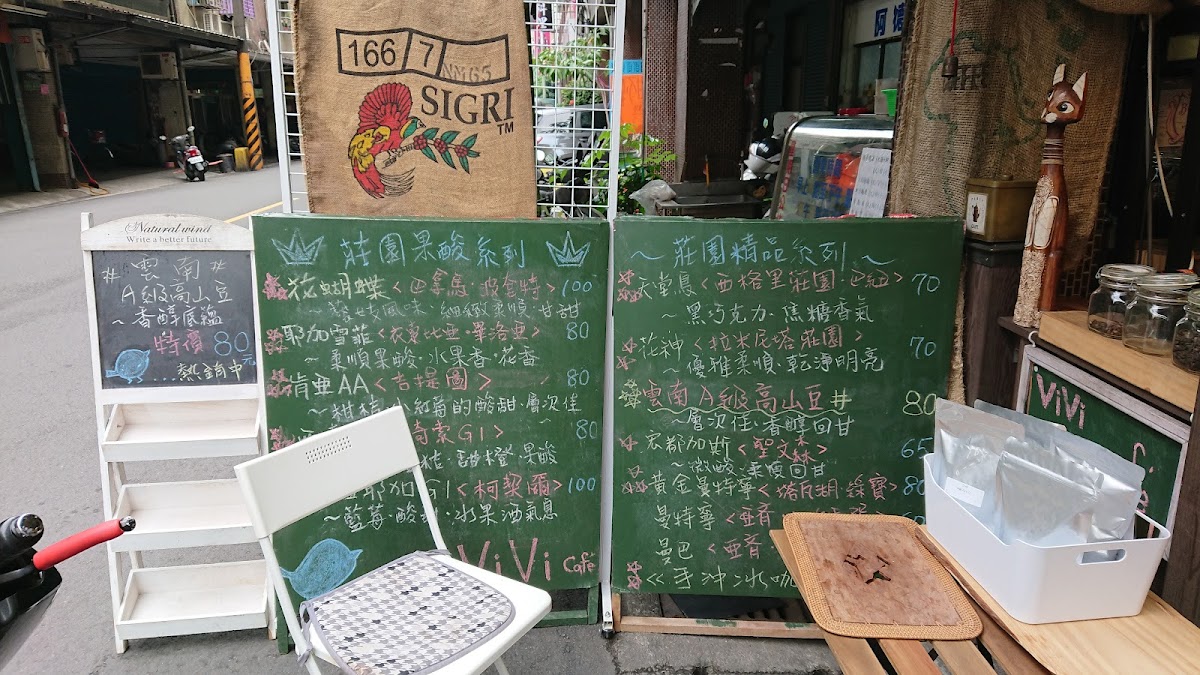 166/7
NM65
SIGRI TM
阿塘
Natural wind
Write a better future
# 雲南 #
A級高山豆
~香醇底蘊
特價 80元
...熱銷中
莊園果酸系列
花蝴蝶<巴拿馬·波奎特> 100
細緻柔順·甘甜
耶加雪菲<衣索比亞·畢洛亞> 80
~柔順果酸·水果香·花香
肯亞AA<吉提圖> 80
~柑桔·小紅莓的酸甜·層次佳
索G1> 80
桔·甜橙·果酸
耶加G1<柯契爾> 100
~藍莓·酸·水果酒氣息
ViVi Café
~莊園精品系列~
天堂鳥<西格里莊園·巴紐> 70
~黑巧克力·焦糖香氣
花神<拉米尼塔莊園> 70
~優雅柔順·乾淨明亮
雲南A級高山豆# 80
~層次佳·香醇回甘
宏都加斯<聖文森> 65
~微酸·柔順回甘
黃金曼特寧<塔瓦湖·綠寶> 80
曼特寧<亞齊
曼巴<亞齊
<<手沖冰咖
ViVi